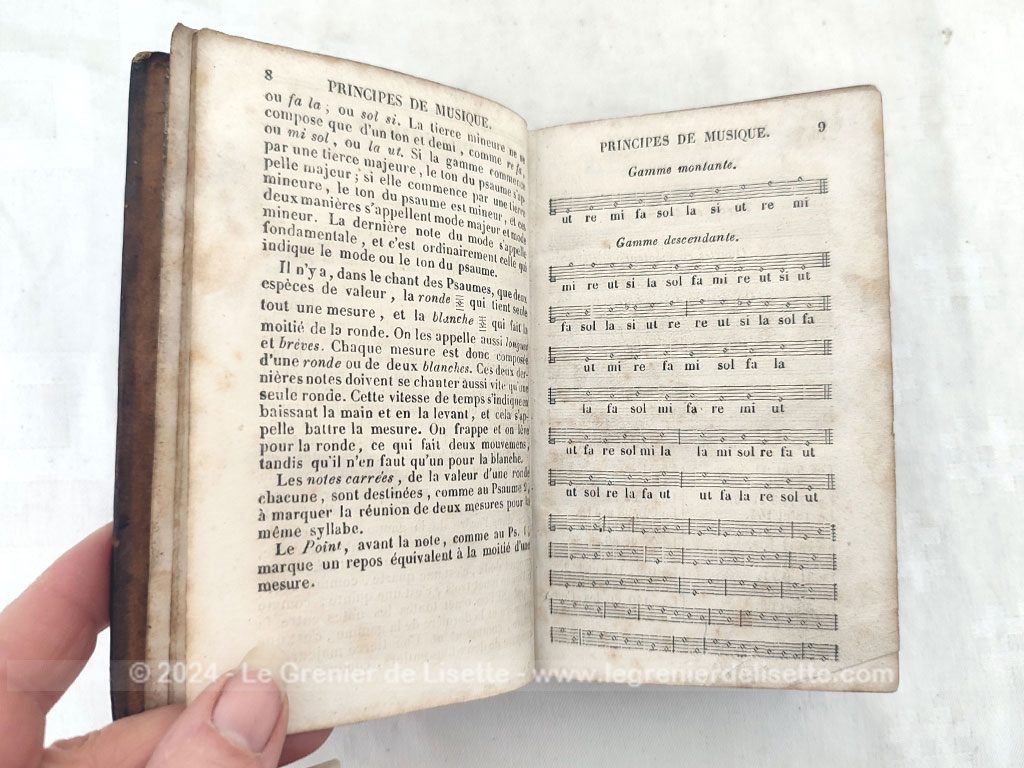 8
PRINCIPES DE MUSIQUE.
ou fa la ; ou sol si. La tierce mineure ne se
compose que d'un ton et demi, comme re fa,
ou mi sol, ou la ut. Si la gamme commence
par une tierce majeure, le ton du psaume s'ap-
pelle majeur ; si elle commence par une tierce
mineure, le ton du psaume est mineur, et ces
deux manières s'appellent mode majeur et mode
mineur. La dernière note du mode s'appelle
fondamentale, et c'est ordinairement celle qui
indique le mode ou le ton du psaume.
Il n'y a, dans le chant des Psaumes, que deux
espèces de valeur, la ronde qui tient seule
tout une mesure, et la blanche qui fait la
moitié de la ronde. On les appelle aussi longues
et brèves. Chaque mesure est donc composée
d'une ronde ou de deux blanches. Ces deux der-
nières notes doivent se chanter aussi vite qu'une
seule ronde. Cette vitesse de temps s'indique en
baissant la main et en la levant, et cela s'ap-
pelle battre la mesure. On frappe et on lève
pour la ronde, ce qui fait deux mouvemens,
tandis qu'il n'en faut qu'un pour la blanche.
Les notes carrées, de la valeur d'une ronde
chacune, sont destinées, comme au Psaume 2,
à marquer la réunion de deux mesures pour la
même syllabe.
Le Point, avant la note, comme au Ps.
marque un repos équivalent à la moitié d'une
mesure.
PRINCIPES DE MUSIQUE.
9
Gamme montante.
ut re mi fa sol la si ut re mi
Gamme descendante.
mi re ut si la sol fa mi re ut si ut
fa sol la si ut re re ut si la sol fa
ut mi re fa mi sol fa la
la fa sol mi fa re mi ut
ut fa re sol mi la la mi sol re fa ut
ut sol re la fa ut ut fa la re sol ut
© 2024 - Le Grenier de Lisette - www.legrenierdelisette.com